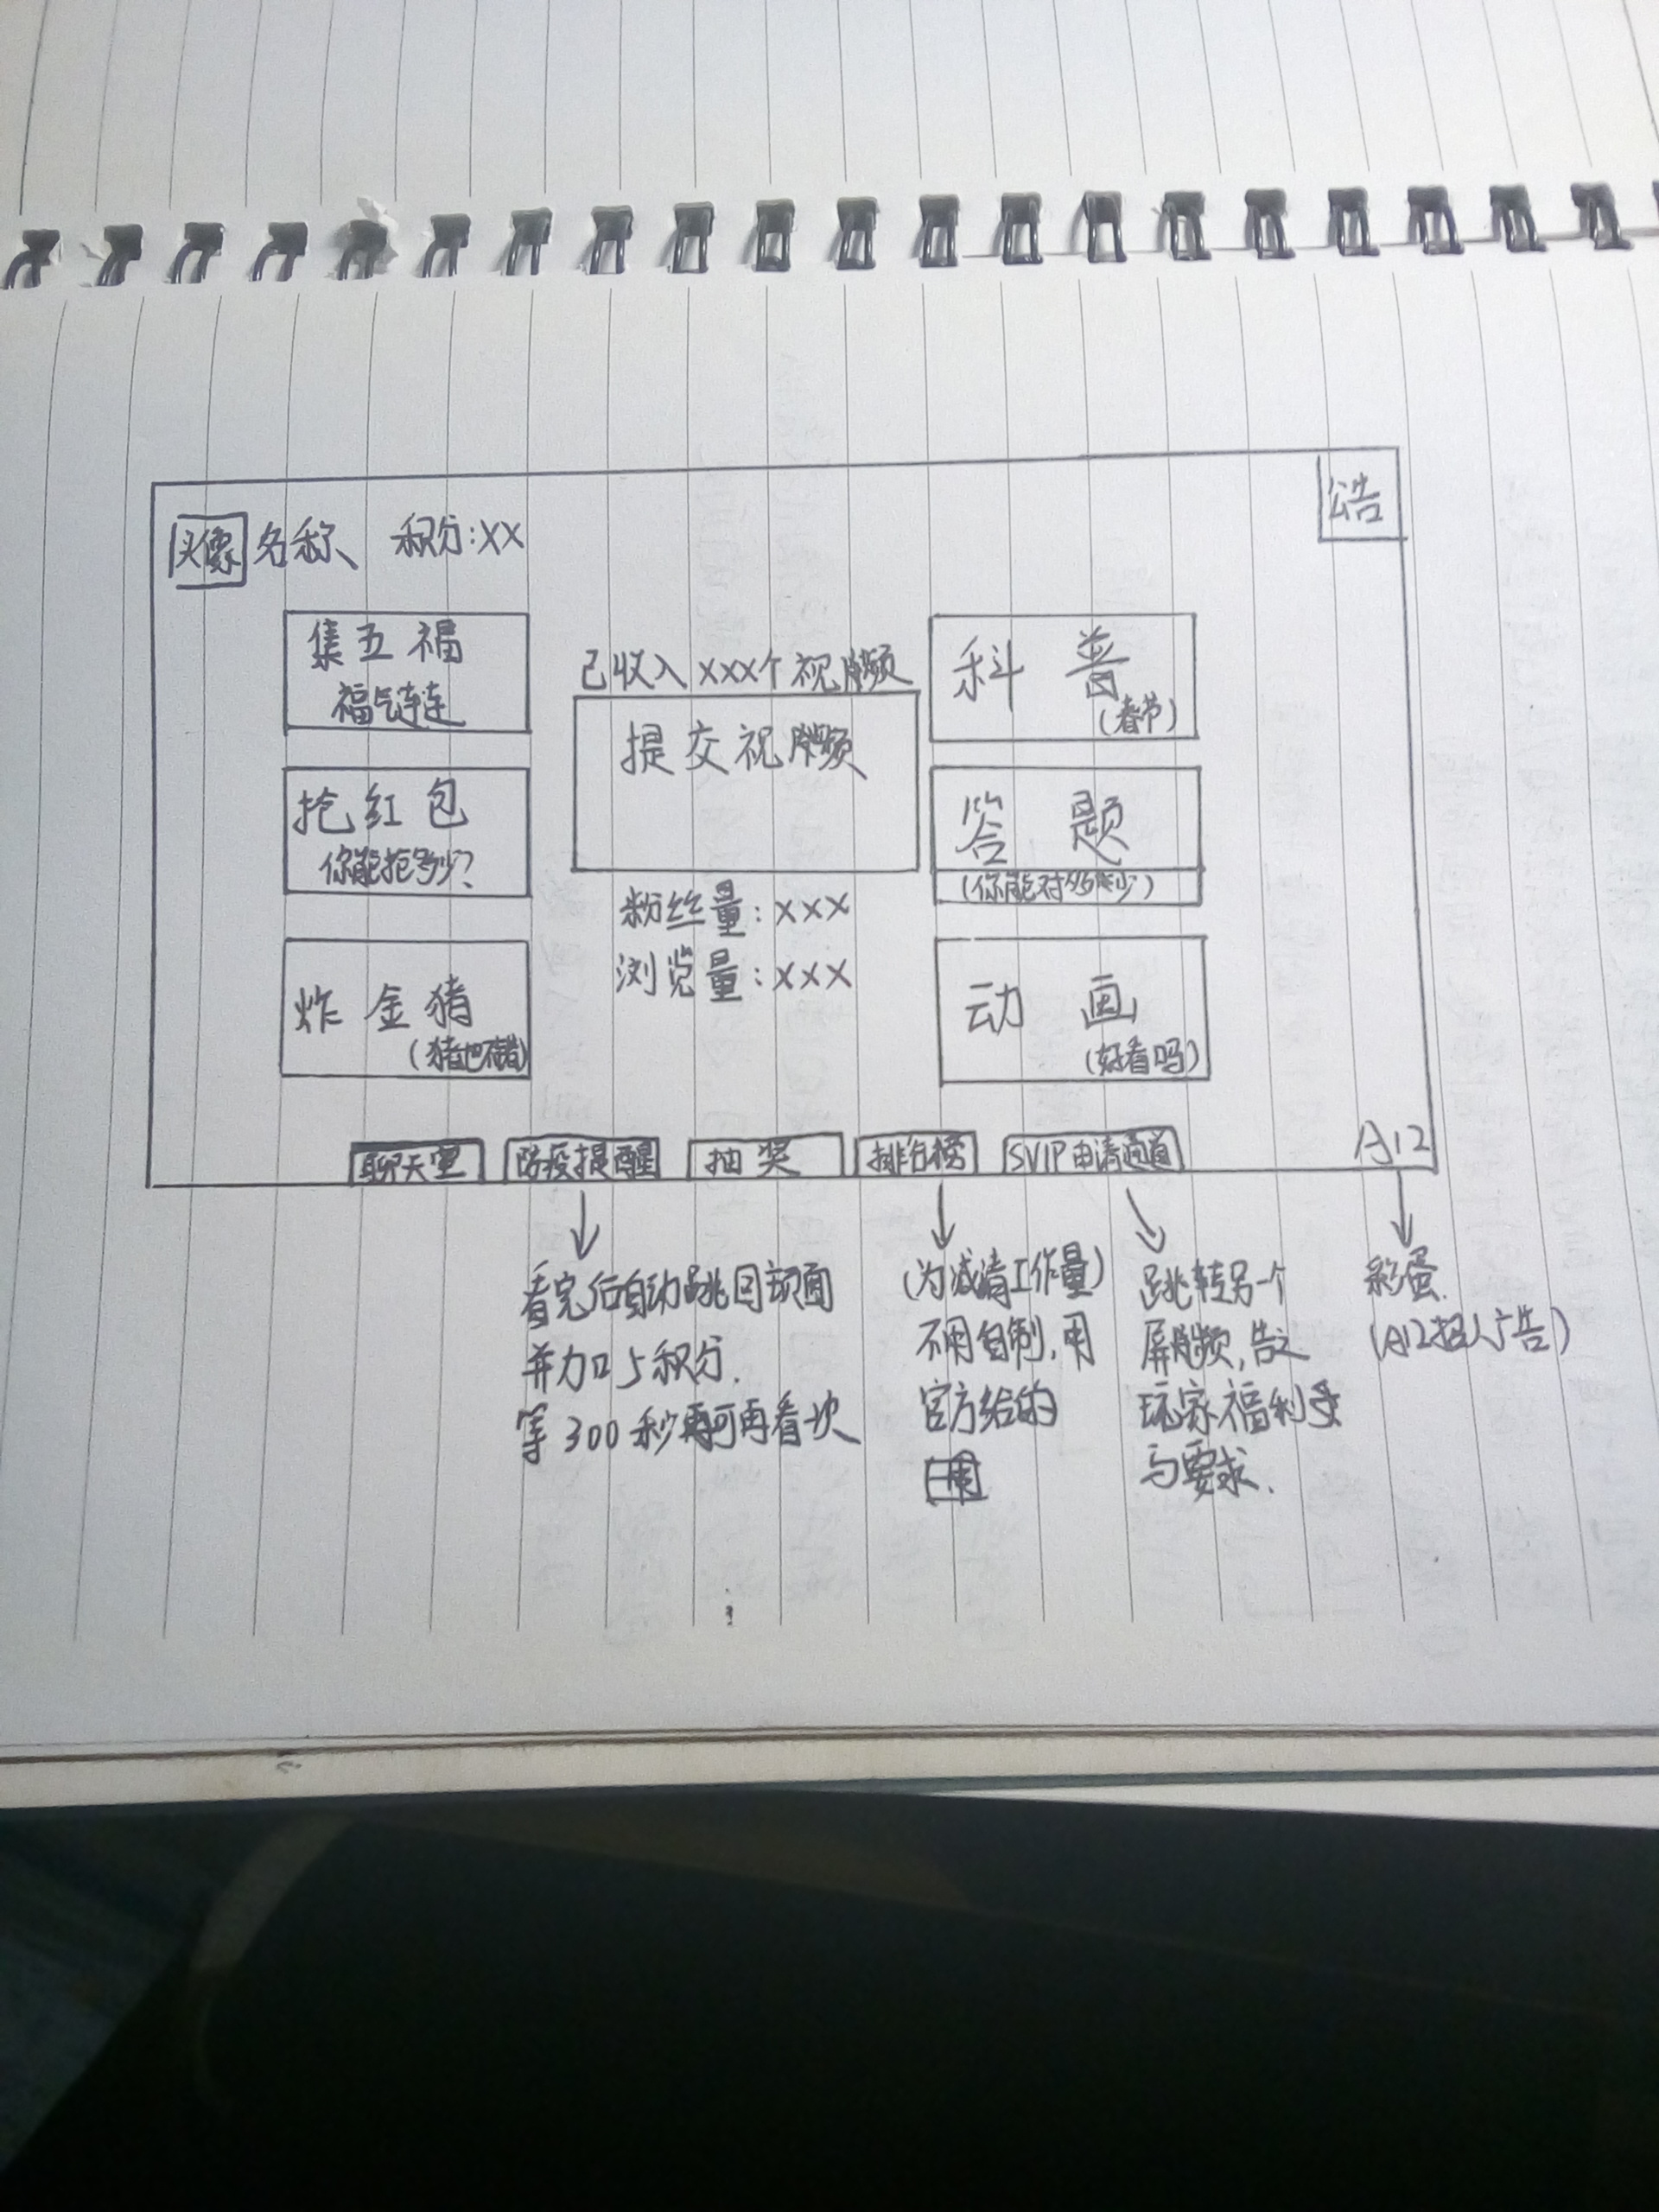 头像 名称 积分:XX
公告
集五福
福气连连
抢红包
你能抢多少?
炸金猪
已收入XXX个视频
提交视频
粉丝量:XXX
浏览量:XXX
科普
(春节)
答题
(你能对多少)
动画
(好看吗)
聊天室 防疫提醒 抽奖 排名榜 SVIP申请通道 A12
看完后自动跳回主页面
并加5积分.
等300秒再可再看一次
(为减清工作量)
不用自制,用
官方给的
跳转另一个
屏频,告之
玩家福利
与要求.
彩蛋.
(A12招人广告)